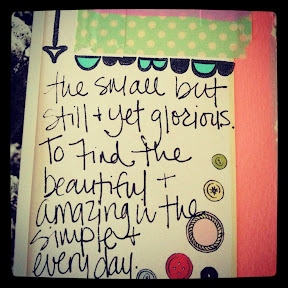 the small but
still + yet glorious.
To find the
beautiful +
amazing in the
simple +
everyday.